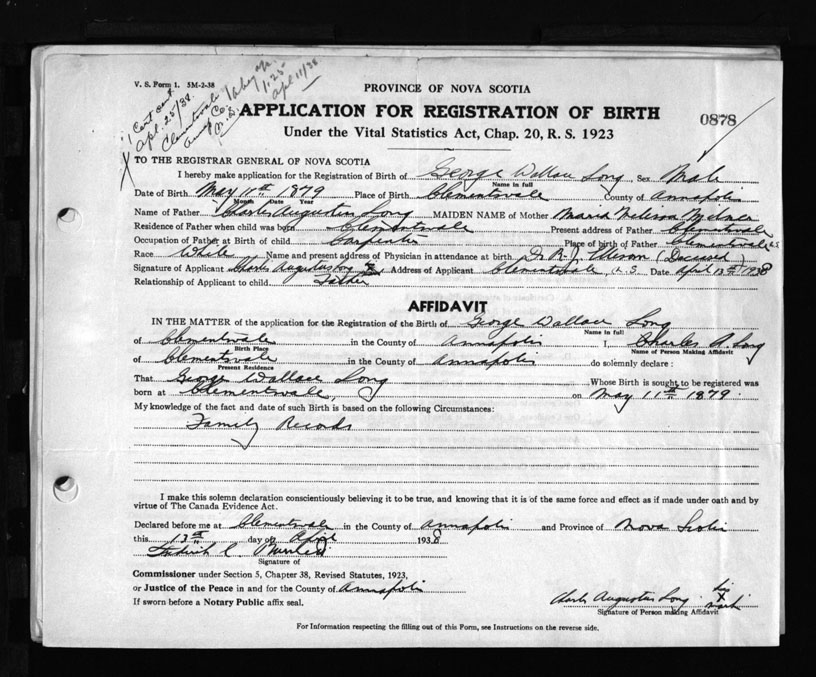 V. S. Form 1. 5M-2-38
1 Cert sent
Apl. 25/38
Clementsvale
Co.
1.25
Apl 11/38
PROVINCE OF NOVA SCOTIA
APPLICATION FOR REGISTRATION OF BIRTH
0878
Under the Vital Statistics Act, Chap. 20, R. S. 1923
X
TO THE REGISTRAR GENERAL OF NOVA SCOTIA
I hereby make application for the Registration of Birth of George Wallace Long Sex Male
Name in full
Date of Birth May 11th 1879 Place of Birth Clementsvale County of Annapolis
Month Date Year
Name of Father Charles Augustus Long MAIDEN NAME of Mother Maria Melissa
Residence of Father when child was born Clementsvale Present address of Father Clementsvale
Occupation of Father at Birth of child Carpenter Place of birth of Father Clementsvale N.S
Race White Name and present address of Physician in attendance at birth Dr. R. J. Ellison (Deceased)
Signature of Applicant Charles Augustus Long Address of Applicant Clementsvale, N.S. Date April 13th 1938
Relationship of Applicant to child Father
AFFIDAVIT
IN THE MATTER of the application for the Registration of the Birth of George Wallace Long
Name in full
of Clementsvale in the County of Annapolis I, Charles A. Long
Birth Place Name of Person Making Affidavit
of Clementsvale in the County of Annapolis do solemnly declare:
Present Residence
That George Wallace Long Whose Birth is sought to be registered was
born at Clementsvale, on May 11th 1879.
My knowledge of the fact and date of such Birth is based on the following Circumstances:
Family Records
I make this solemn declaration conscientiously believing it to be true, and knowing that it is of the same force and effect as if made under oath and by
virtue of The Canada Evidence Act.
Declared before me at Clementsvale in the County of Annapolis and Province of Nova Scotia
this 13th day of April 1938
Signature of
Commissioner under Section 5, Chapter 38, Revised Statutes, 1923,
or Justice of the Peace in and for the County of Annapolis
If sworn before a Notary Public affix seal.
Charles Augustus Long his X mark
Signature of Person making Affidavit
For Information respecting the filling out of this Form, see Instructions on the reverse side.